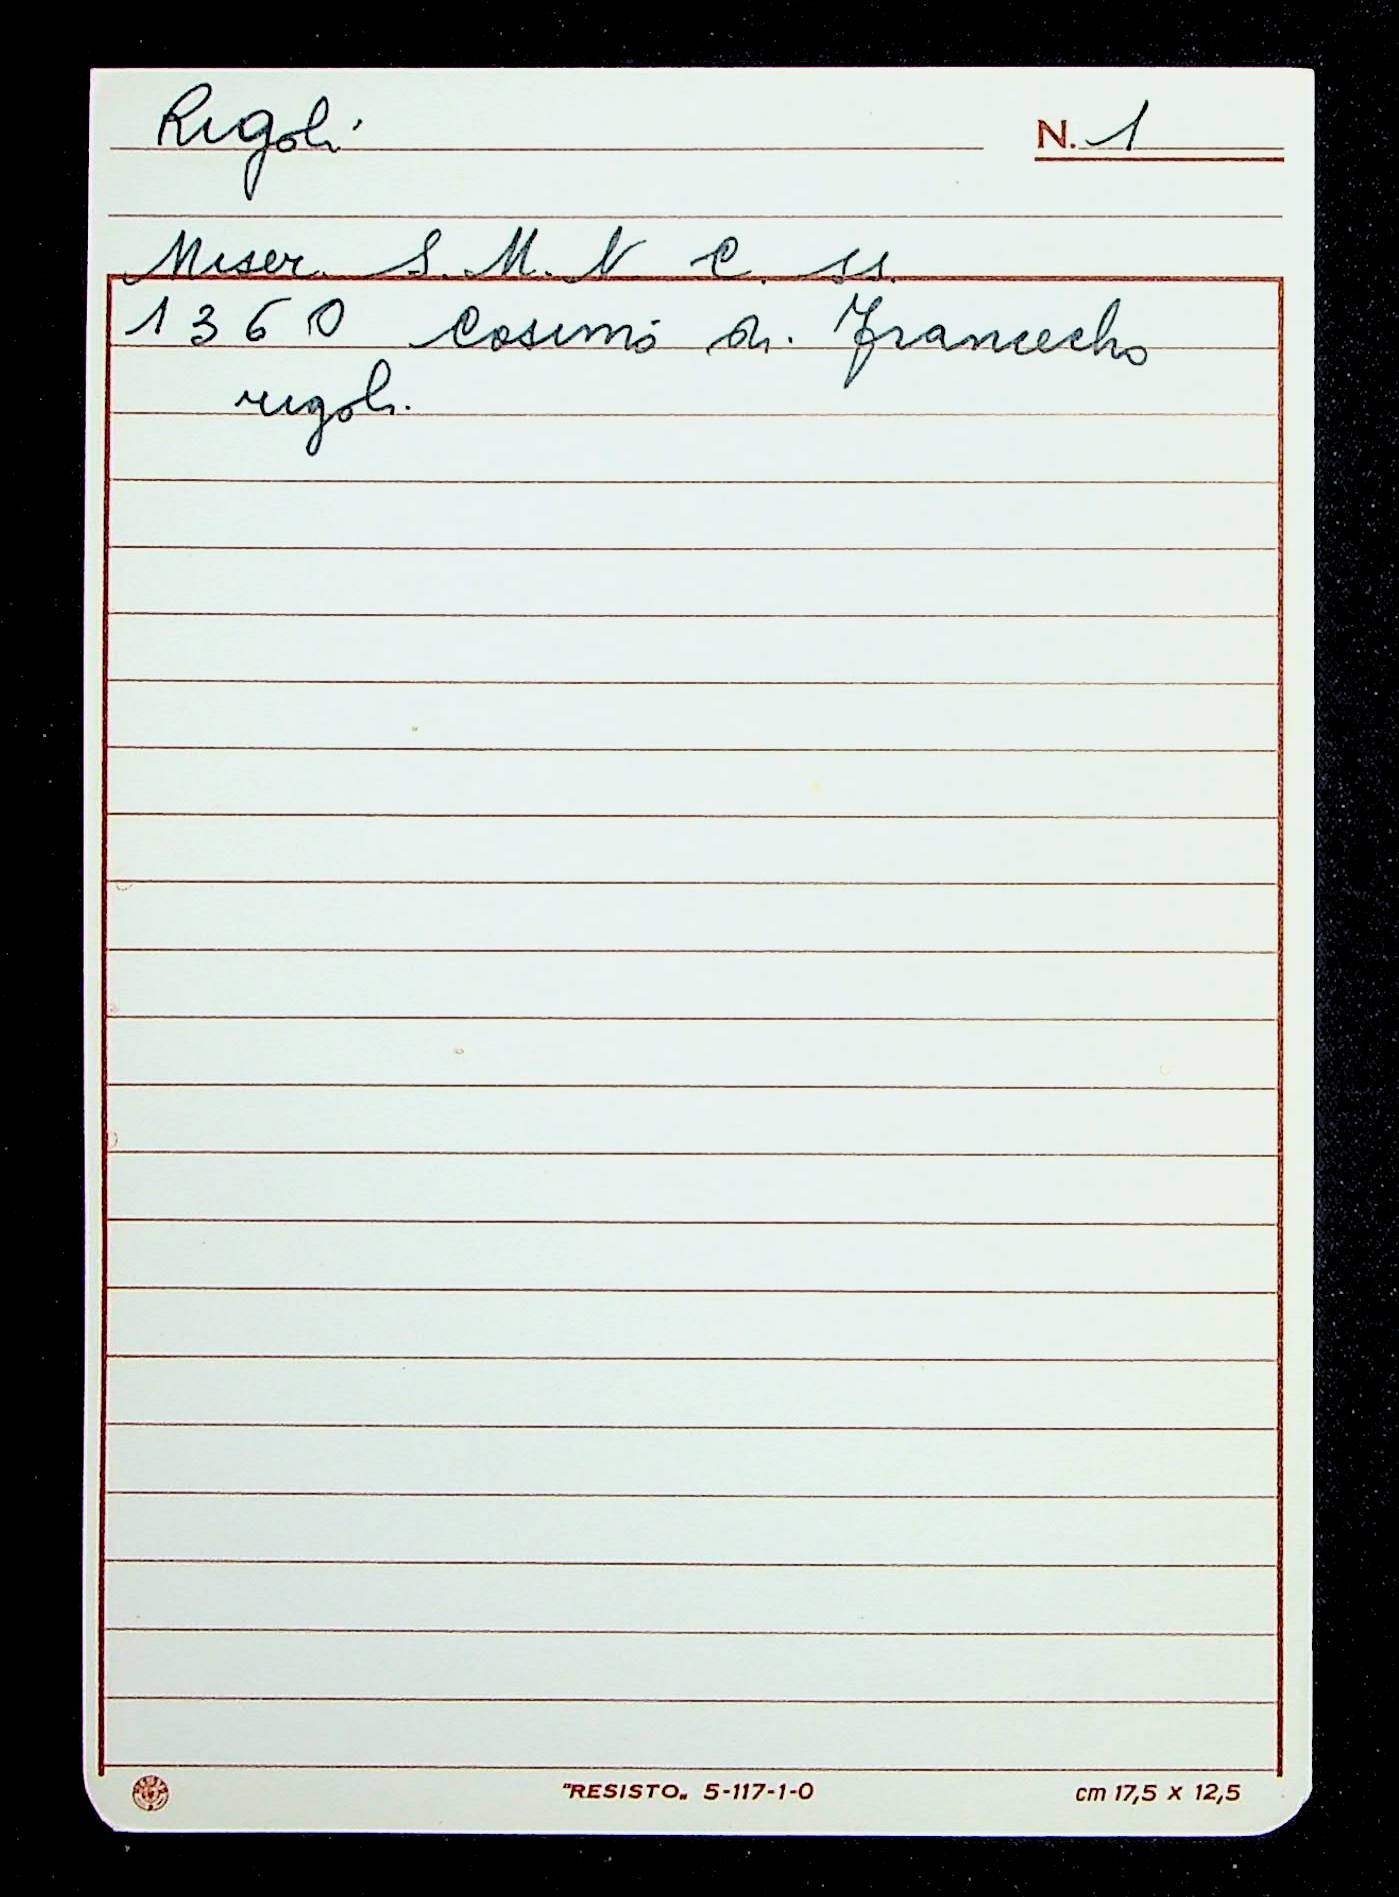 Rigoli N. 1
Miser. S. M. N C. ss.
1360 Cosimo di Francecho
rigoli
"RESISTO„ 5-117-1-0 cm 17,5 x 12,5